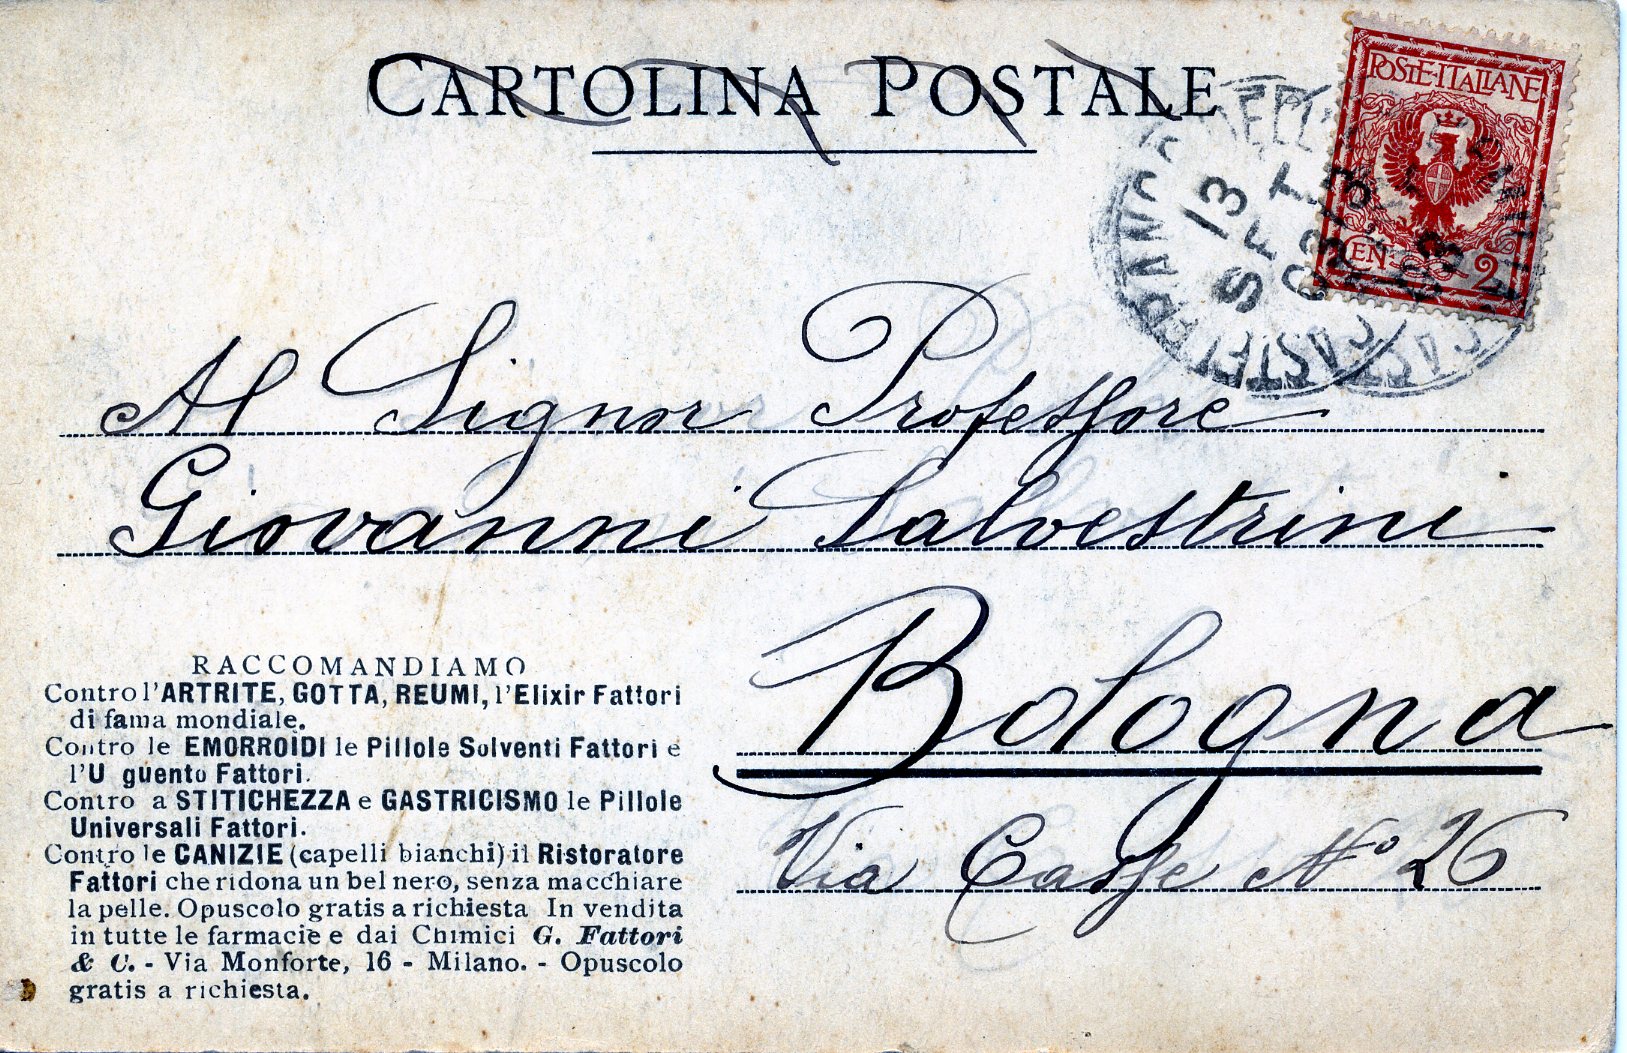 CARTOLINA POSTALE
POSTE·ITALIANE
CEN. 2
13
SET
03
Al Signor Professore
Giovanni Salvestrini
Bologna
Via Casse No 26
RACCOMANDIAMO
Contro l'ARTRITE, GOTTA, REUMI, l'Elixir Fattori
di fama mondiale.
Contro le EMORROIDI le Pillole Solventi Fattori e
l'U guento Fattori.
Contro a STITICHEZZA e GASTRICISMO le Pillole
Universali Fattori.
Contro le CANIZIE (capelli bianchi) il Ristoratore
Fattori che ridona un bel nero, senza macchiare
la pelle. Opuscolo gratis a richiesta In vendita
in tutte le farmacie e dai Chimici G. Fattori
& C. - Via Monforte, 16 - Milano. - Opuscolo
gratis a richiesta.